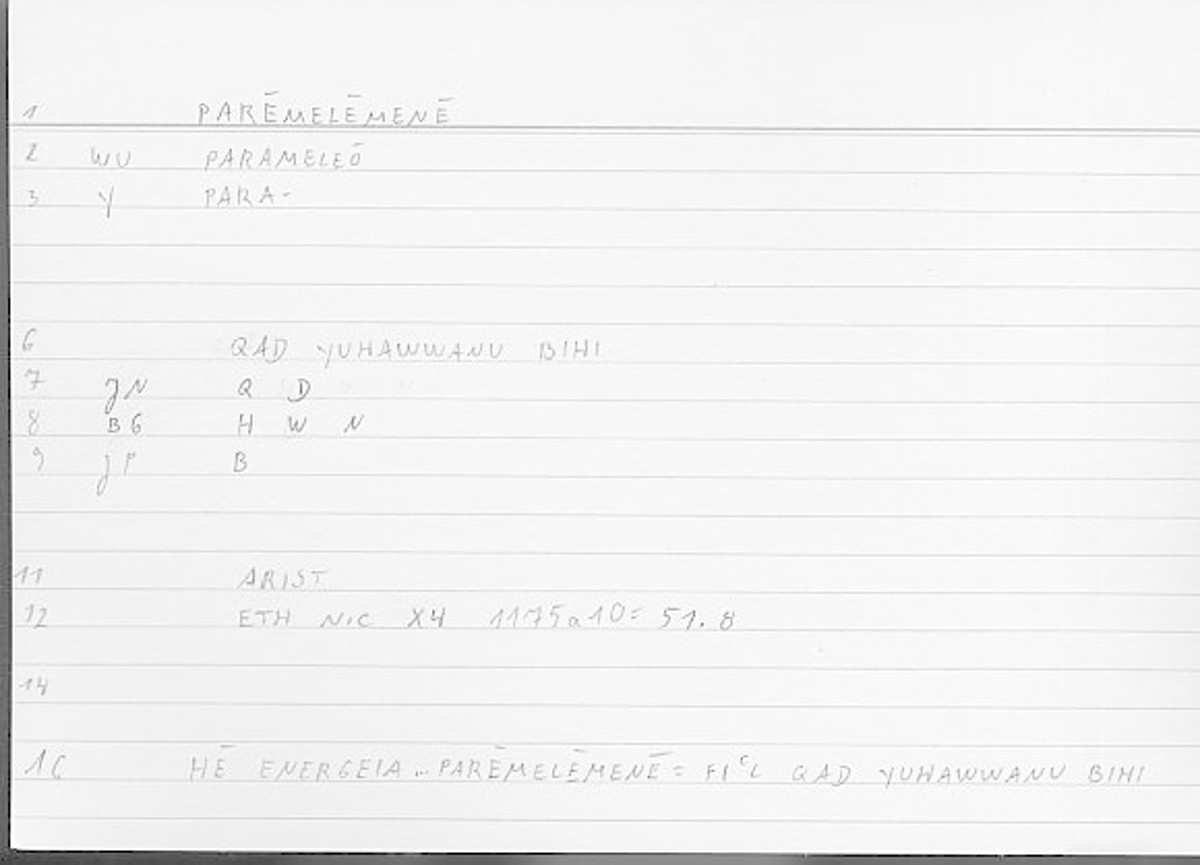 1 PARĒMELĒMENĒ
2 WU PARAMELEŌ
3 Y PARA-
6 QAD YUHAWWANU BIHI
7 JN Q D
8 BG H W N
9 JP B
11 ARIST
12 ETH NIC X4 1175a10= 51.8
14
16 HĒ ENERGEIA... PARĒMELĒMENĒ = FIᶜL QAD YUHAWWANU BIHI